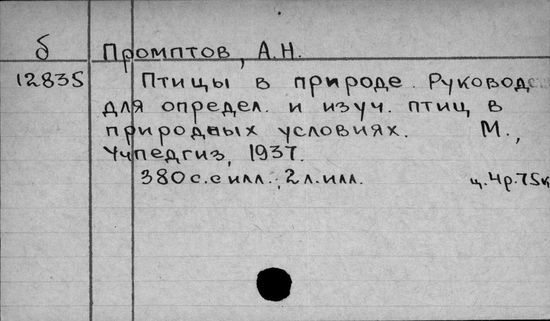 б Промптов, А.Н.
12835 Птицы в природе. Руковод
для определ. и изуч. птиц в
природных условиях. М.,
Учпедгиз, 1937.
380 с. с илл., 2 л. илл. ц. 4р. 75к